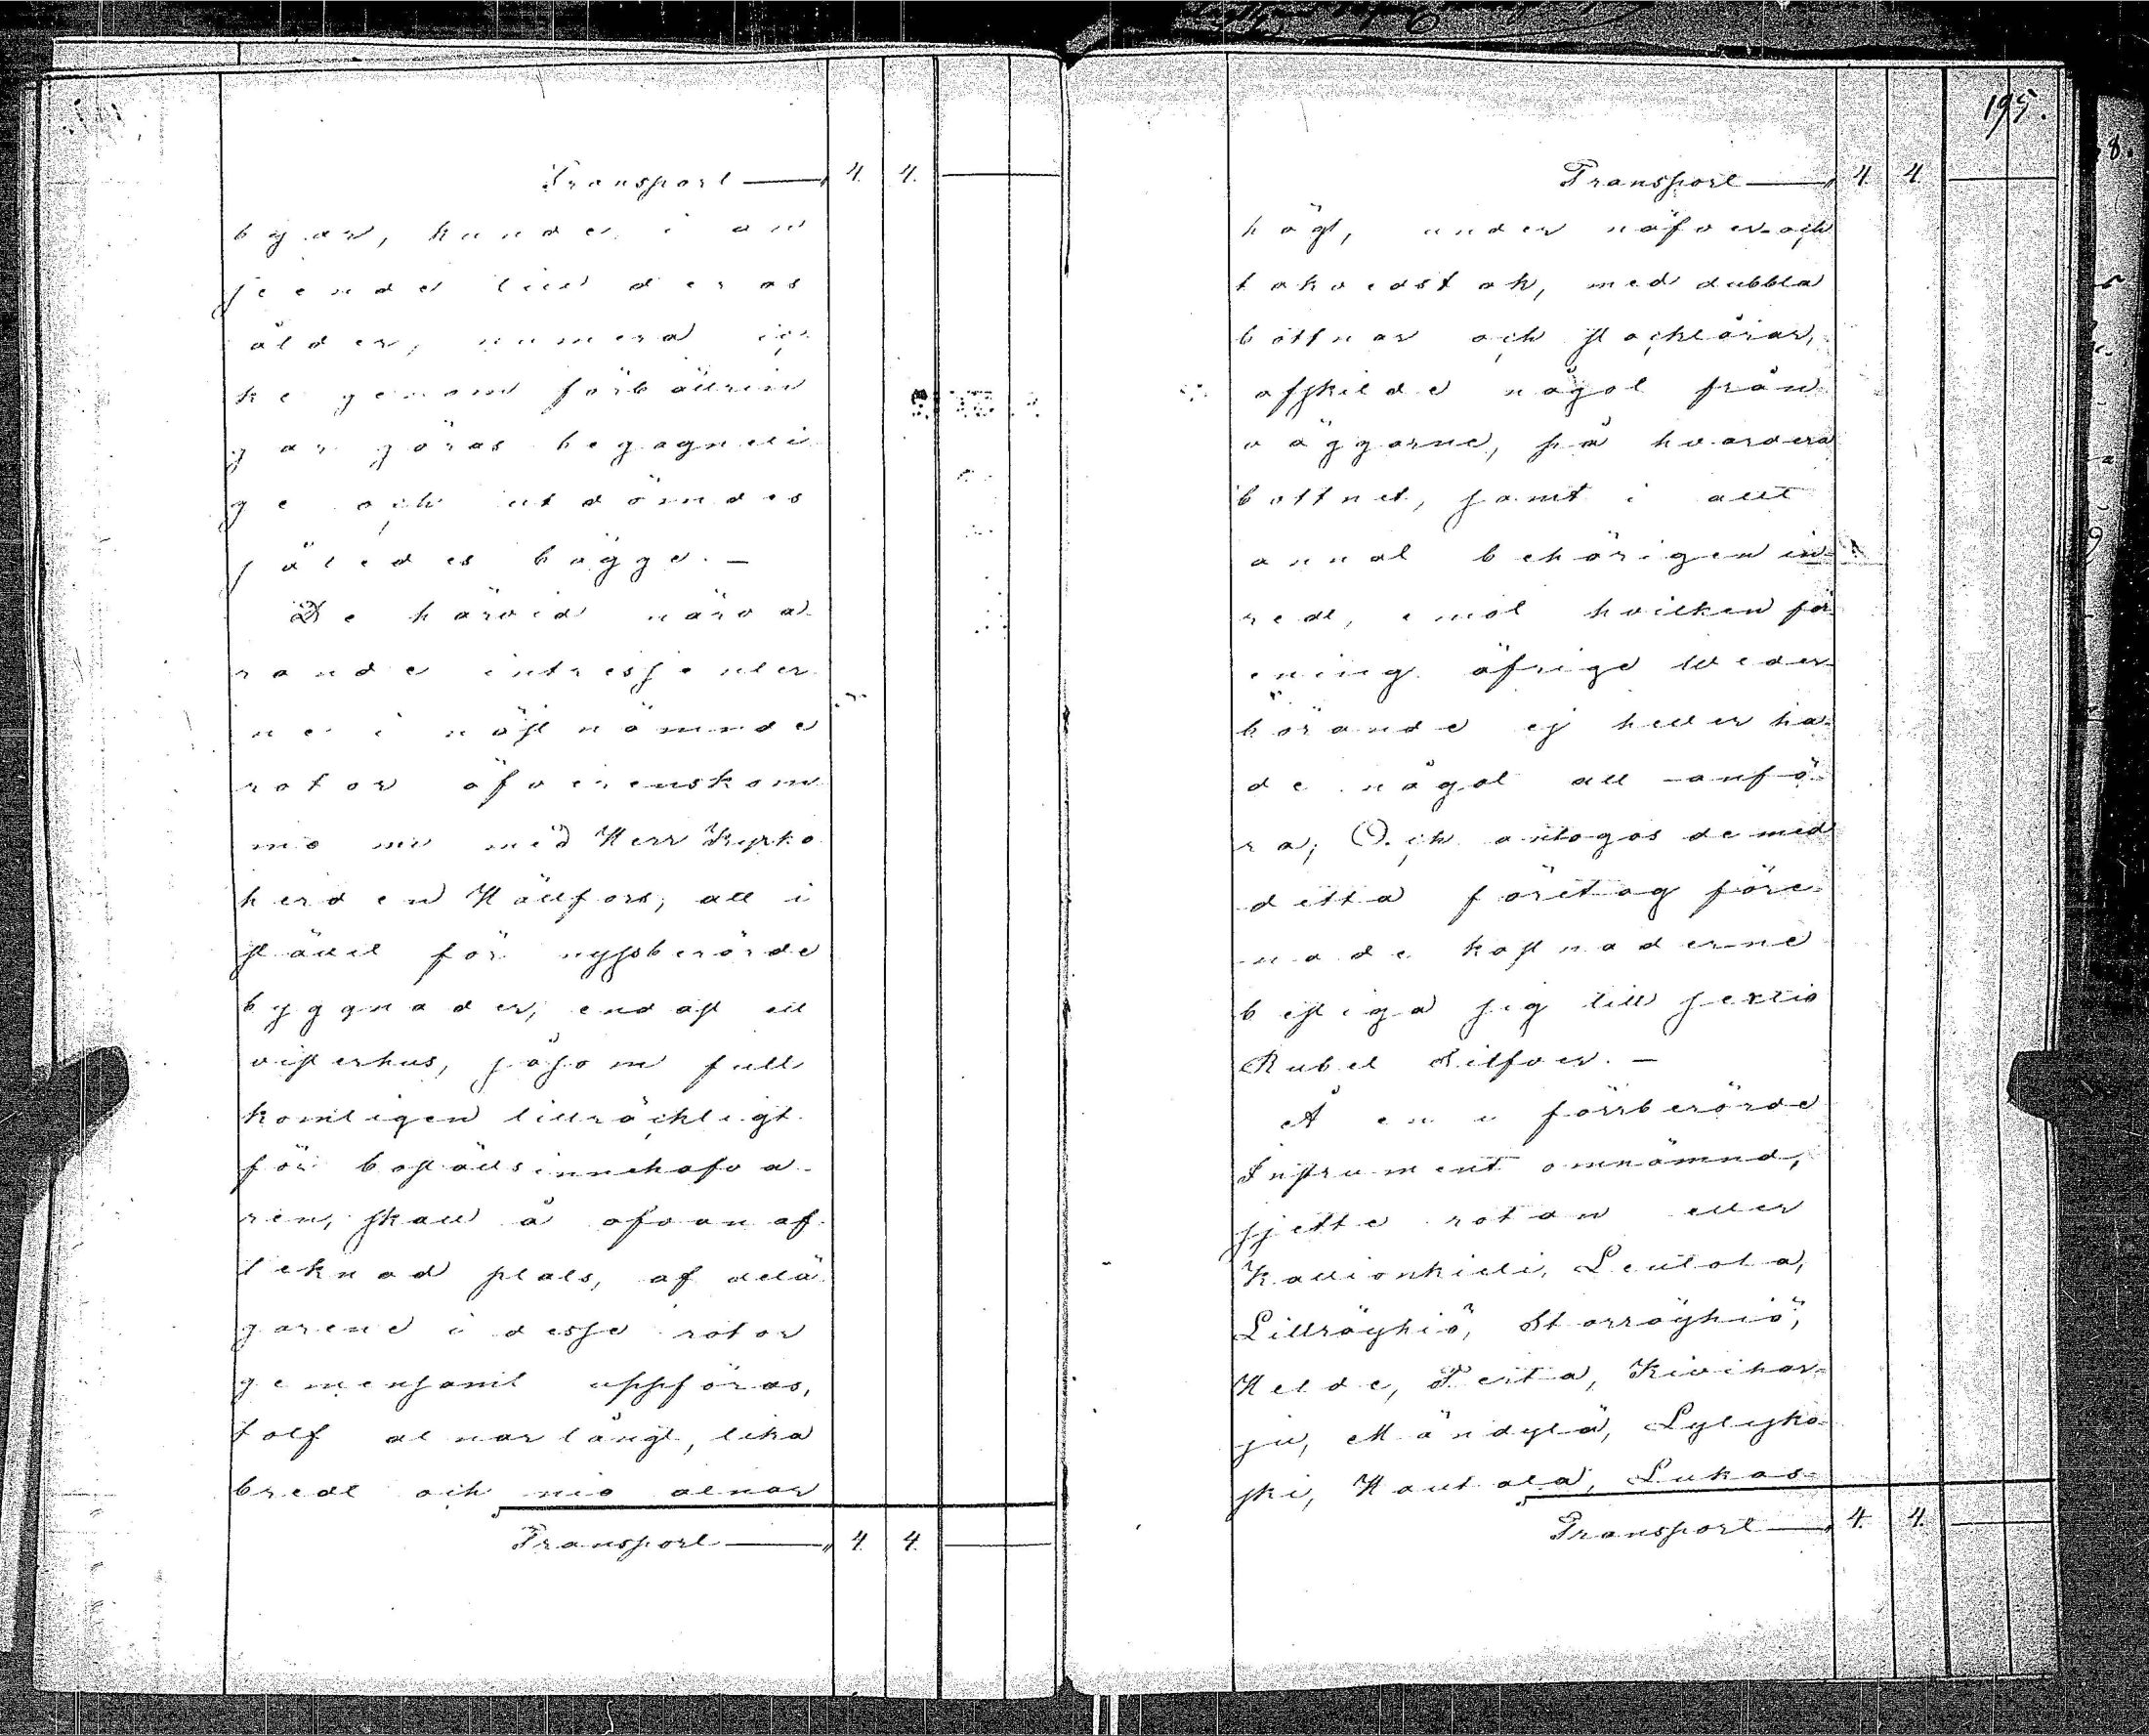 Transport — 4. 4. —
byar, kunde i an
seende till deras
ålder, numera ic
ke genom förbättrin
gar göras begagneli
ge och utdömdes
således bägge. —
De härvid närva
rande intressenter
ne i näst nämnde
rotor öfverenskom
mo nu med Herr Kyrko
herden Hällfors, att i
stället för nyssberörde
byggnader, endast ett
visterhus, såsom full
komligen tillräckligt
för boställsinnehafva
ren, skall å ofvan af
teknad plats, af delä
garene i desse rotor
gemensamt uppföras,
tolf alnar långt, lika
bredt och nio alnar
Transport — 4. 4. —
195.
Transport — 4. 4. —
högt, under näfver och
takvedstak, med dubbla
bottnar och stocklårar,
afskilde något från
väggarne, på hvardera
bottnet, samt i allt
annat behörigen in
redt, emot hvilken för
ening öfrige Weder
börande ej heller ha
de något att anfö
ra; Och antogos de med
detta företag före
nade kostnaderne
bestiga sig till sextio
Rubel Silfver. —
Å en u förrberörde
Instrument omnämnd,
sjette rotan eller
Kallionkieli, Leutola,
Lillröyhiö, Storröyhiö,
Helde, Perta, Kivihar
ju, Mändylä, Lylyko
ski, Hautala, Lukas
Transport — 4. 4. —